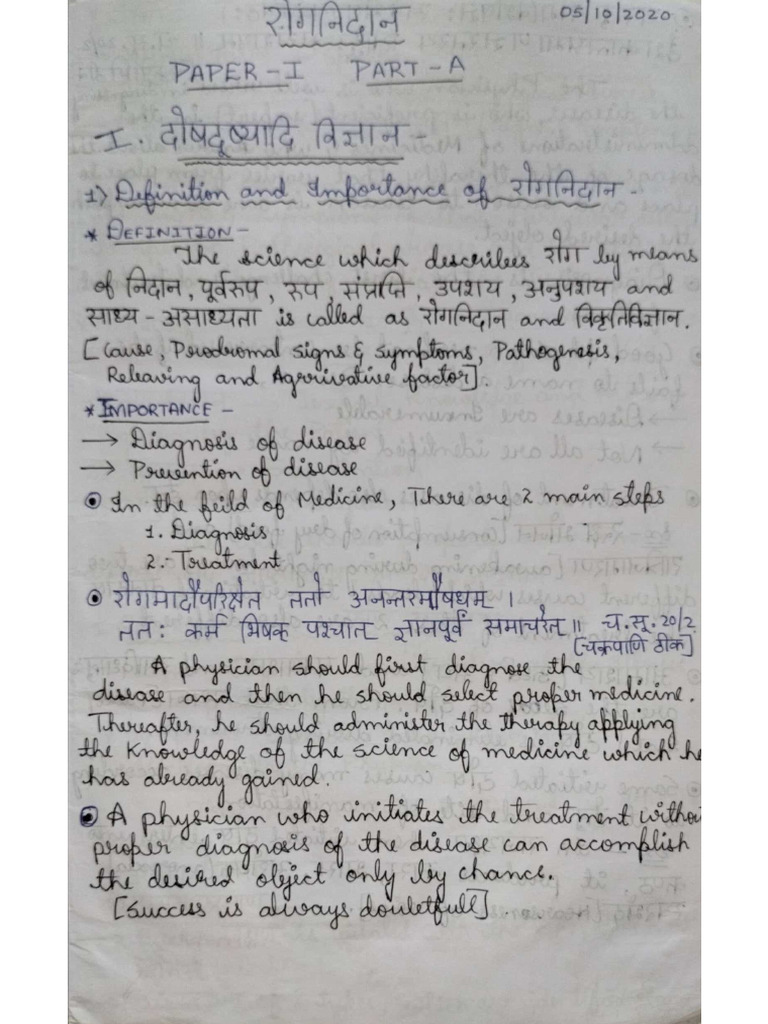 रोगनिदान
05/10/2020
PAPER-I PART-A
I. दोषदूष्यादि विज्ञान -
1) Definition and Importance of रोगनिदान -
* DEFINITION -
The science which describes रोग by means
of निदान, पूर्वरुप, रुप, संप्राप्ति, उपशय, अनुपशय and
साध्य - असाध्यता is called as रोगनिदान and विकृतिविज्ञान.
[Cause, Prodromal signs & symptoms, Pathogenesis,
Releaving and Agrrivative factor].
* IMPORTANCE -
→ Diagnosis of disease
→ Prevention of disease
⦿ In the feild of Medicine, There are 2 main steps
1. Diagnosis
2. Treatment
⦿ रोगमादौपरिक्षेत ततो अनन्तरमौषधम् ।
ततः कर्म भिषक पश्चात् ज्ञानपूर्वं समाचरेत् ॥ च.सू.20/2
[चक्रपाणि ठीक]
A physician should first diagnose the
disease and then he should select proper medicine.
Thereafter, he should administer the therapy applying
the knowledge of the science of medicine which he
has already gained.
⦿ A physician who initiates the treatment withou
proper diagnosis of the disease can accomplish
the desired object only by chance.
[Success is always doubtfull].